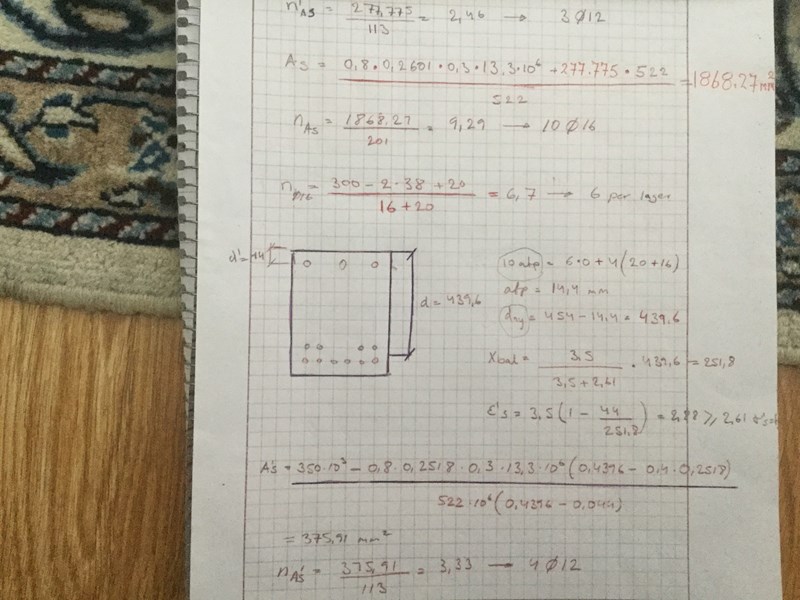 n'As = 277,775 / 113 = 2,46 → 3Ø12
As = 0,8·0,2601·0,3·13,3·10⁶ + 277.775·522 / 522 = 1868,27 mm²
nAs = 1868,27 / 201 = 9,29 → 10Ø16
= 300 - 2·38 + 20 / 16 + 20 = 6,7 → 6 per layer
d' = 44
d = 439,6
10 atp = 6·0 + 4(20+16)
atp = 14,4 mm
dny = 454 - 14,4 = 439,6
Xbal = 3,5 / 3,5 + 2,61 · 439,6 = 251,8
ε's = 3,5(1 - 44 / 251,8) = 2,88 ≥ 2,61
A's = 350·10³ - 0,8·0,2518·0,3·13,3·10⁶(0,4396 - 0,4·0,2518) / 522·10⁶(0,4396 - 0,044)
= 375,91 mm²
nA's = 375,91 / 113 = 3,33 → 4Ø12